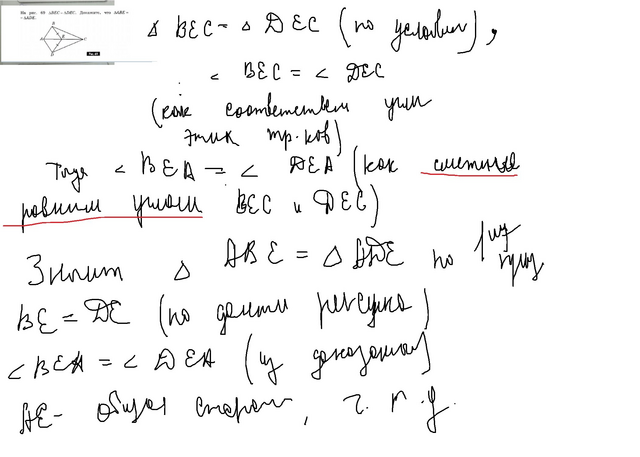 На рис. 49 ΔBEC = ΔDEC. Докажите, что ΔABE =
= ΔADE.
B
A E C
D
Δ BEC = Δ DEC (по условию),
∠ BEC = ∠ DEC
(как соответствен углы
этих тр-ков)
Тогда ∠ BEA = ∠ DEA (как смежные
равным углам BEC и DEC)
Значит Δ ABE = Δ ADE по I из
BE = DE (по данным рисунка)
∠ BEA = ∠ DEA (из доказанного)
AE - общая сторона, ч. т. д.